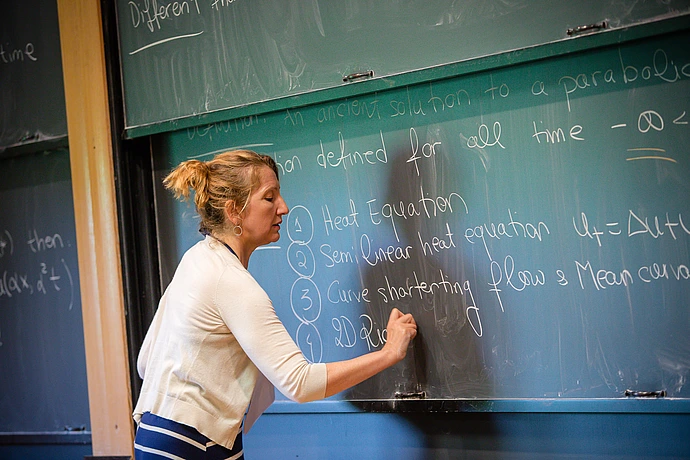 Different
time
Definition: An ancient solution to a parabolic
ion defined for all time - ∞ <
① Heat Equation
② Semilinear heat equation u_t = Δu +
③ Curve shartenting flow & Mean curva
④ 2D Ri
) then.
u(αx, α²t)